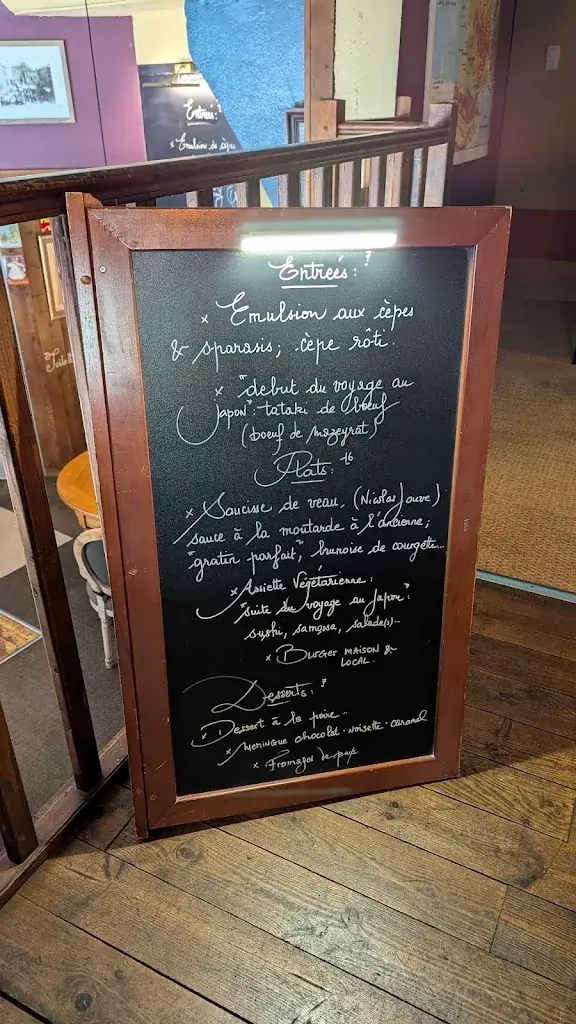 Entrées:
Emulsion de cèpes
Entrées: 7
x Emulsion aux cèpes
& sparasis, cèpe rôti.
x "debut du voyage au
Japon": tataki de boeuf
(boeuf de mazeyrat)
Plats: 16
x Saucisse de veau, (Nicolas Jouve)
sauce à la moutarde à l'ancienne;
"gratin parfait", brunoise de courgette...
x Assiette Végétarienne:
"suite du voyage au Japon":
sushi, samossa, salade(s)...
x BURGER MAISON &
LOCAL.
Desserts: 7
x Dessert à la poire...
x Meringue chocolat. noisette. caramel
x Fromages de pays